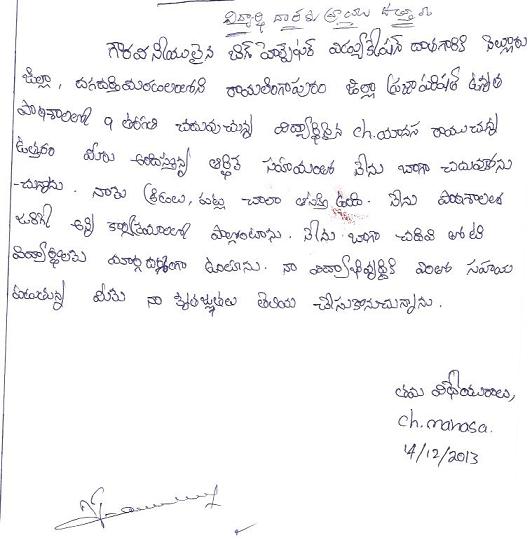 విద్యార్థి దాతకు వ్రాయు ఉత్తరం
గౌరవనీయులైన బిగ్ హెల్ప్ ఫర్ ఎడ్యుకేషన్ దాతగారికి నెల్లూరు
జిల్లా, దగదర్తి మండలంలోని రాయలింగాపురం జిల్లా ప్రజాపరిషత్ ఉన్నత
పాఠశాలలో 9 తరగతి చదువుచున్న విద్యార్థినైన ch. మానస రాయుచున్న
ఉత్తరం మీరు అందిస్తున్న ఆర్థిక సహాయంతో నేను బాగా చదువుకొను
-చున్నాను. నాకు క్రీడలు, పాటలు చాలా ఆసక్తి ఉంది. నేను పాఠశాలలో
జరిగే అన్ని కార్యక్రమాలలో పాల్గొంటాను. నేను బాగా చదివి తోటి
విద్యార్థులకు మార్గదర్శంగా ఉంటాను. నా విద్యాభివృద్ధికి ఎంతో సహాయ
పడుతున్న మీకు నా కృతజ్ఞతలు తెలియ చేసుకొనుచున్నాను.
తమ విధేయురాలు,
ch. manasa.
14/12/2013